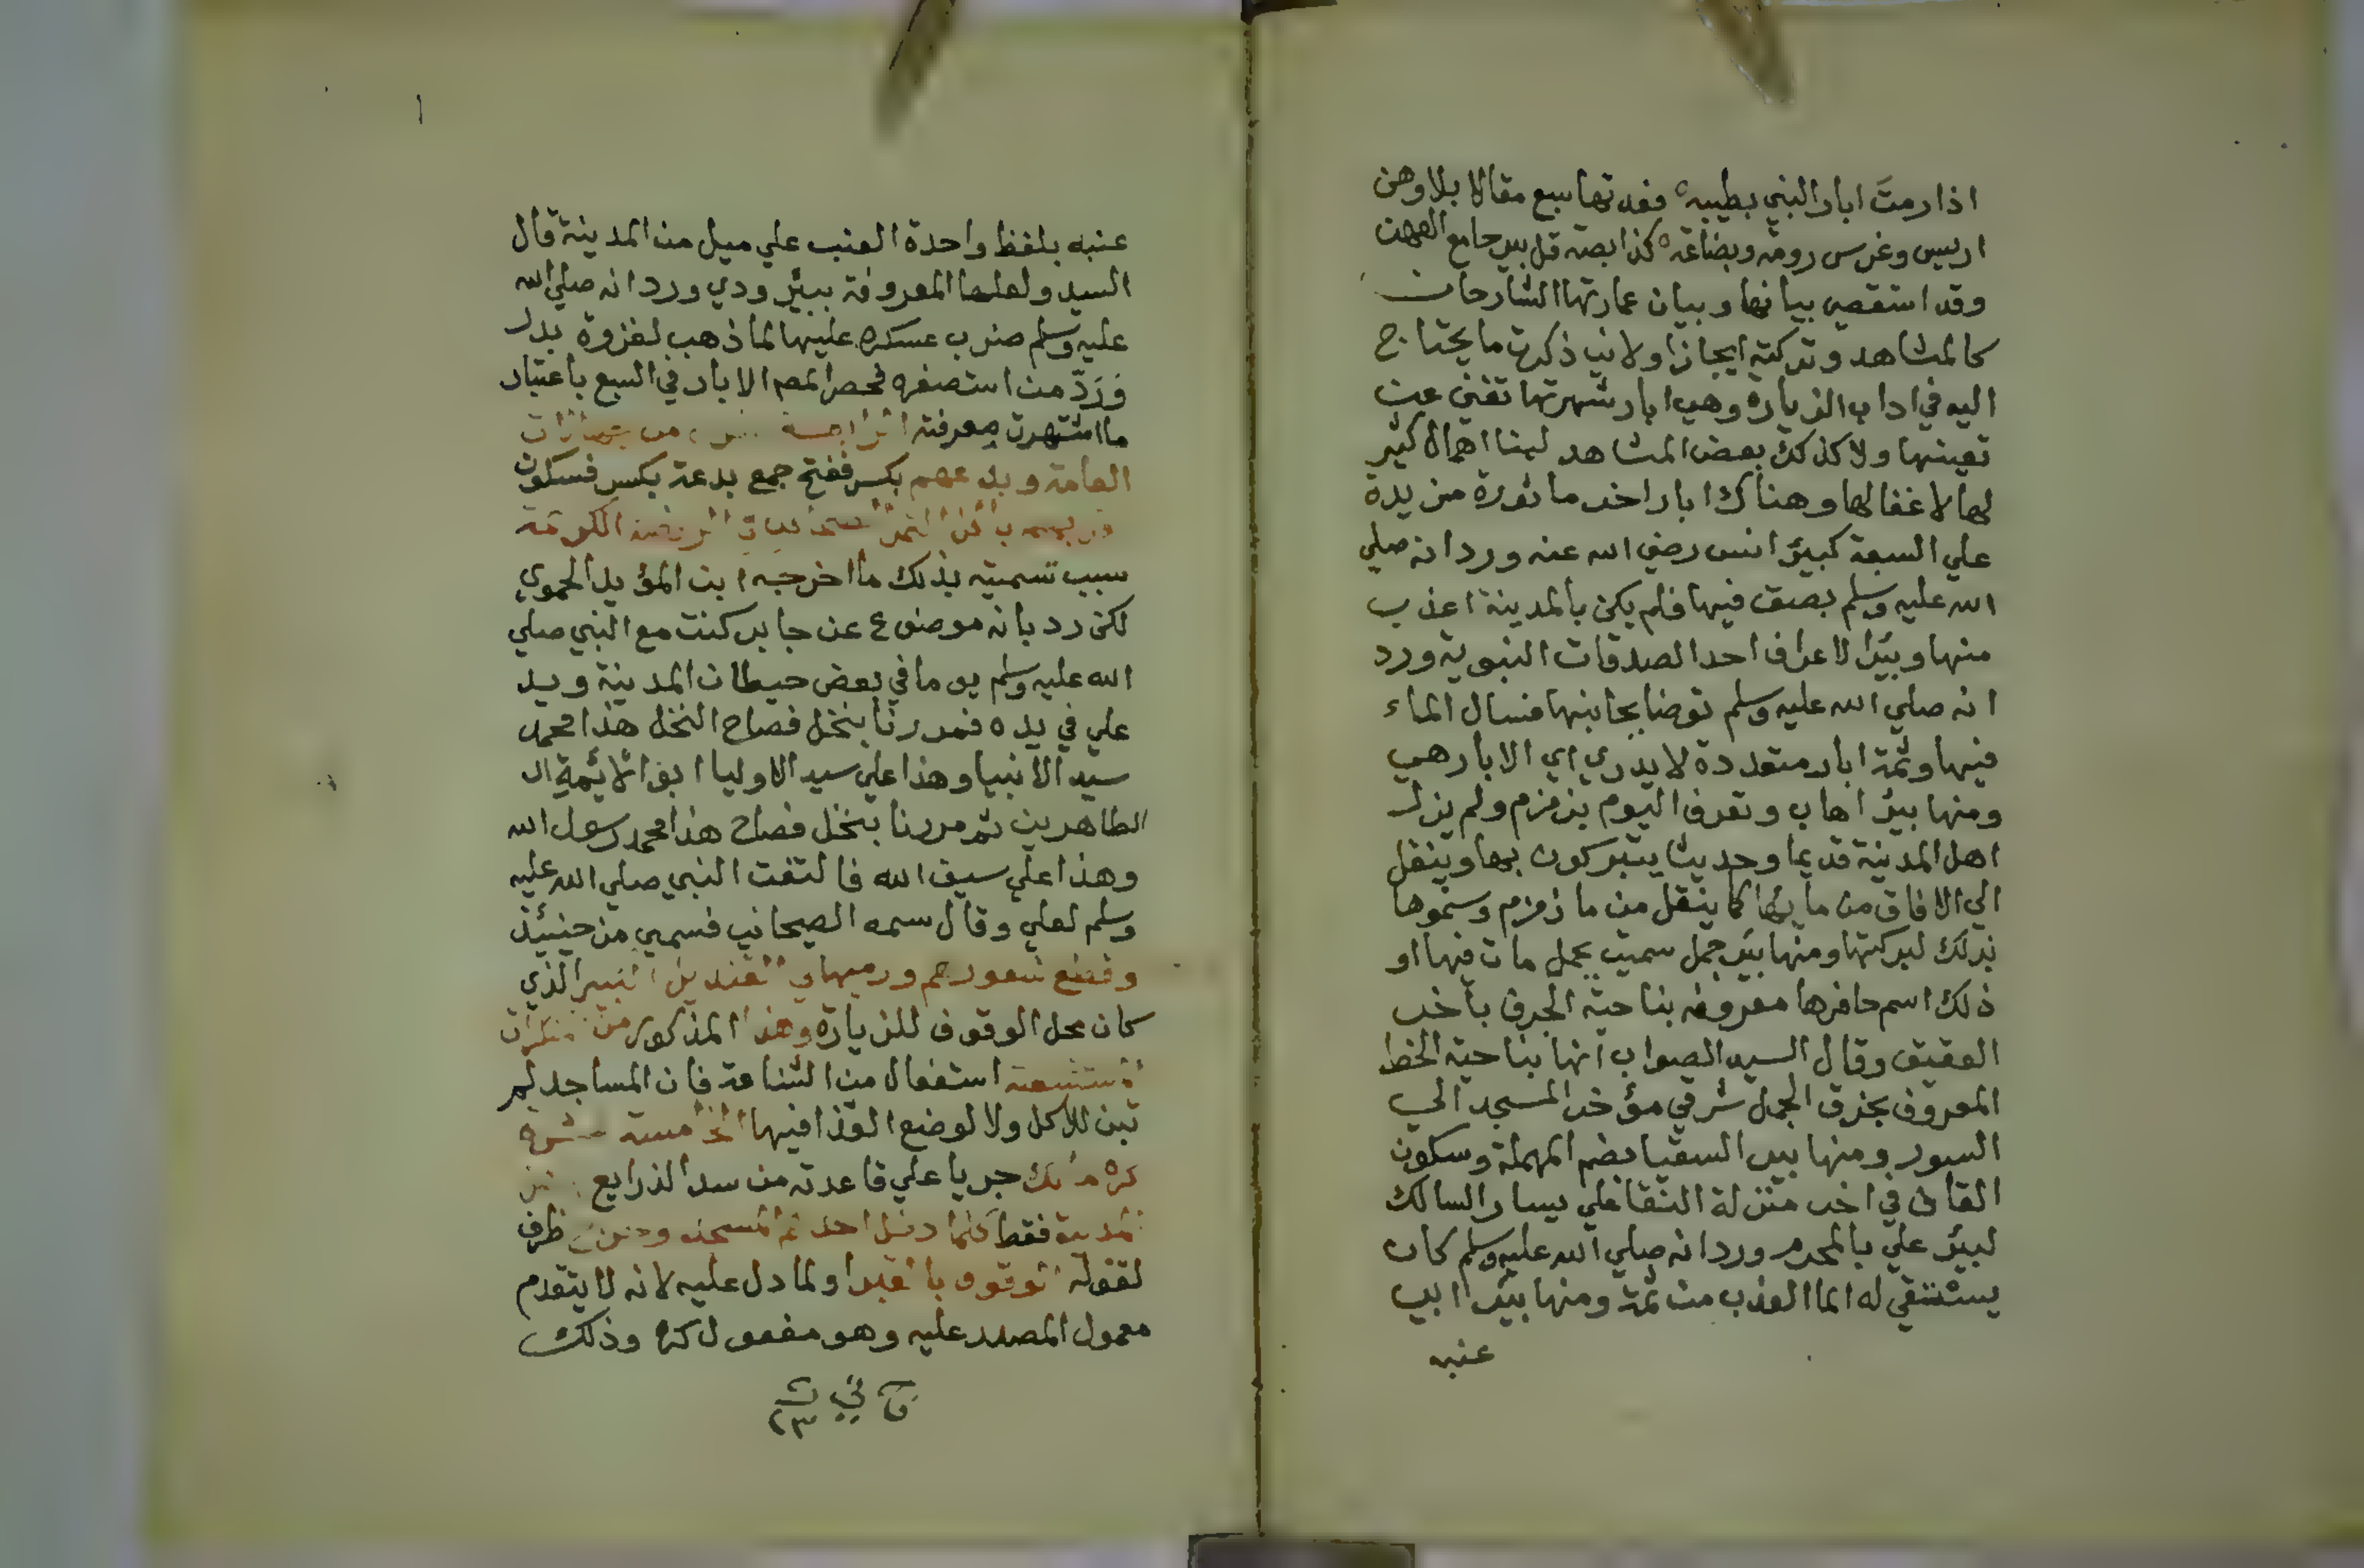 اذا رمتَ ابار النبي بطيبه فعدتها سبع مقالا بلا وهن
اريس وغرس رومة وبضاعة كذا بصة قل بير حا مع العهن
وقد استقصي بيانها وبيان عمارتها الشارحان
كالمشاهد وتركته ايجازا ولاني ذكرت ما يحتاج
اليه في اداب الزيارة وهي ابار شهرتها تغني عن
تعينها ولا كذلك بعض المشاهد لبنا اهمال كثير
لها لاغفالها وهناك ابار اخر ماثورة مزيدة
علي السبعة كبيئر انس رضي الله عنه ورد انه صلي
الله عليه وسلم بصق فيها فلم يكن بالمدينة اعذب
منها وبيئر الاعراف احد الصدقات النبوية ورد
انه صلي الله عليه وسلم توضا بجانبها فسال الماء
فيها وثمة ابار متعددة لا يدري اي الابار هي
ومنها بيئر اهاب وتعرف اليوم بزمزم ولم يزل
اهل المدينة قديما وحديثا يتبركون بها وينقل
الي الافاق من مايها كما ينقل من ما زمزم وسموها
بذلك لبركتها ومنها بئر جمل سميت بجمل مات فيها او
ذلك اسم حافرها معروفة بناحية الجرف باخر
العقيق وقال السيد الصواب انها بناحية الخط
المعروف بخرق الجمل شرقي مؤخر المسجد الي
السور ومنها بير السقيا بضم المهملة وسكون
القاف في اخر منزلة النقا علي يسار السالك
لبيئر علي بالمحرم ورد انه صلي الله عليه وسلم كان
يستقي له الما العذب من ثمة ومنها بيئر ابي
عنبه
عنبه بلفظ واحدة العنب علي ميل من المدينة قال
السيد ولعلها المعروفة ببيئر ودي ورد انه صلي الله
عليه وسلم ضرب عسكره عليها لما ذهب لغزوة بدر
وَرَدّ من استصغره فحصر المص الابار في السبع باعتبار
ما اشتهرت معرفته الرابعة من جهالات
العامة وبدعهم بكسر ففتح جمع بدعة بكسر فسكون
باكل التمر الصيحاني في الروضة الكريمة
سبب تسميته بذلك ما اخرجه ابن المؤيد الحموي
لكن رد بانه موضوع عن جابر كنت مع النبي صلي
الله عليه وسلم يوما في بعض حيطان المدينة ويد
علي في يده فمررنا بنخل فصاح النخل هذا محمد
سيد الانبيا وهذا علي سيد الاوليا ابو الائمة ال
الطاهرين ثم مررنا بنخل فصاح هذا محمد رسول الله
وهذا علي سيف الله فالتفت النبي صلي الله عليه
وسلم لعلي وقال سمه الصيحاني فسمي من حينيئذ
وقطع شعورهم ورميها في القنديل الكبير الذي
كان محل الوقوف للزيارة وهذا المذكور من منكرات
مستشنعة استفعال من الشناعة فان المساجد لم
تبن للاكل ولا لوضع القذا فيها الخامسة عشرة
كره مالك جريا علي قاعدته من سد الذرايع
المدينة فقط كلما دخل احدهم المسجد وخرج ظرف
لقوله الوقوف بالقبر او لما دل عليه لانه لا يتقدم
معمول المصدر عليه وهو مفعول كره وذلك